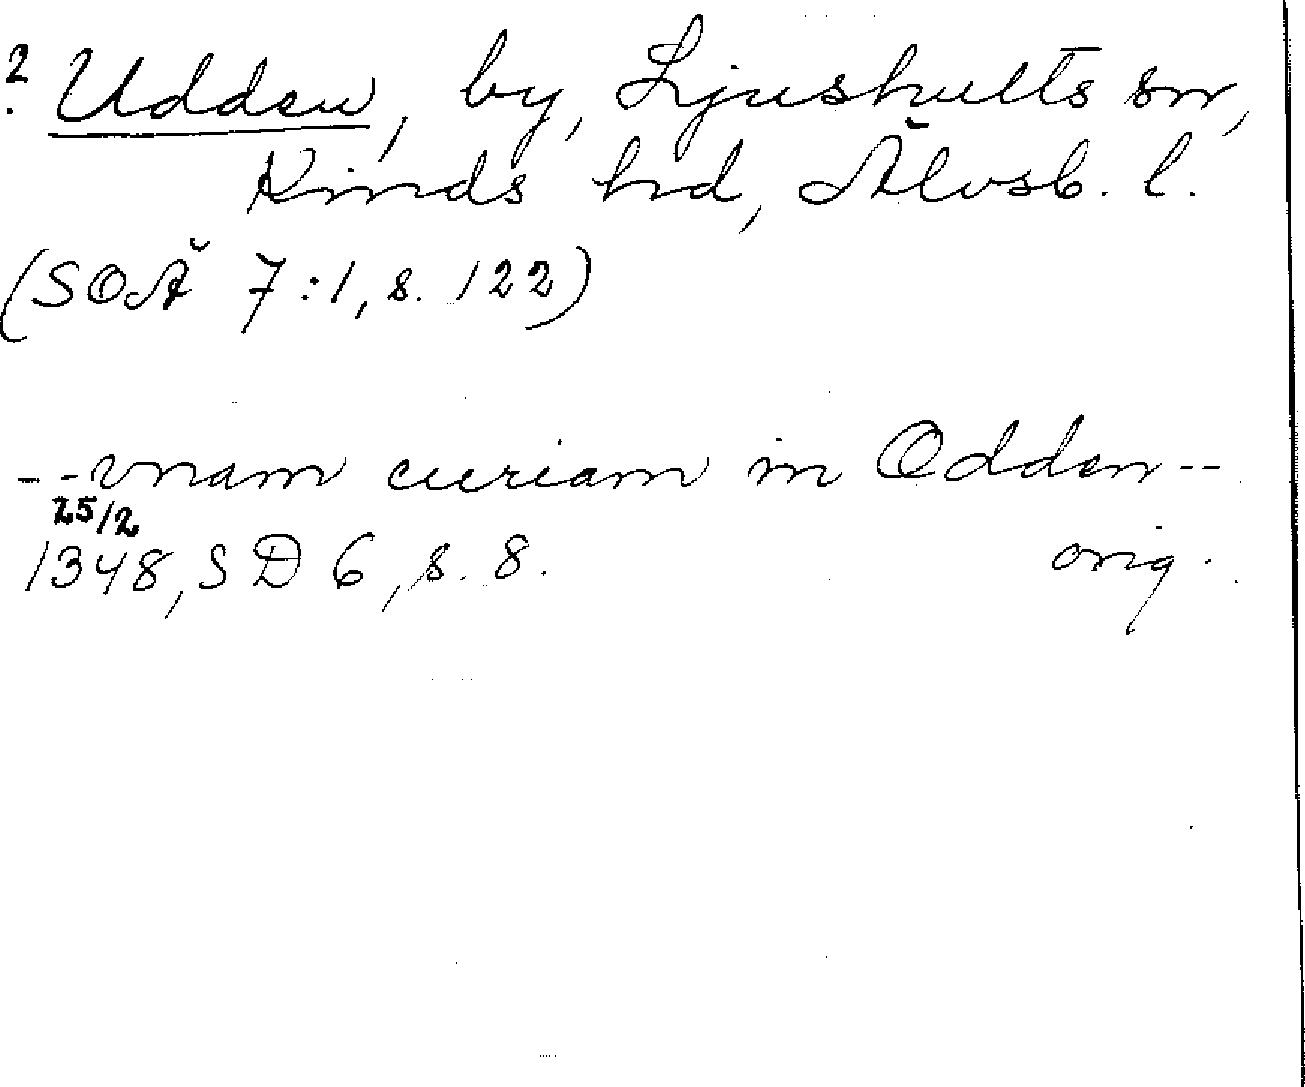 ? Udden, by, Ljushults sn,
Kinds hd, Älvsb. l.
(SOÄ 7:1, s. 122)
- - vnam curiam in Odden - -
25/2
1348, SD 6, s. 8. orig.